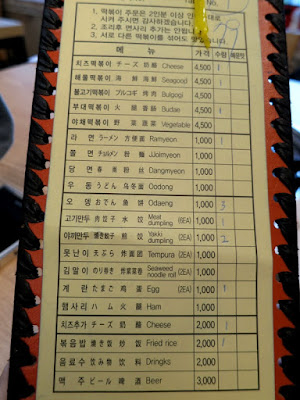 1. 떡볶이 주문은 2인분 이상
시켜 주시면 감사하겠습니다.
2. 조리후 면사리 추가는 안됩니다.
3. 서로 다른 떡볶이를 섞어도
메 뉴 가격 수량 매운맛
치즈떡볶이 チーズ 奶酪 Cheese 4,500
해물떡볶이 海鮮 海鲜 Seagood 4,500 1
불고기떡볶이 プルコギ 烤肉 Bulgogi 4,500
부대떡볶이 火腿香肠 Budae 4,500 1
야채떡볶이 野菜 蔬菜 Vegetable 4,500
라 면 ラーメン 方便面 Ramyeon 1,000 1
쫄 면 チョルメン 筋麵 JJolmyeon 1,000
당 면 春雨 粉丝 Dangmyeon 1,000
우 동 うどん 乌冬面 Oodong 1,000
오 뎅 おでん 鱼饼 Odaeng 1,000 3
고기만두 肉餃子 水饺 Meat dumpling (2EA) 1,000 1
야끼만두 焼き餃子 煎饺 Yakki dumpling (2EA) 1,000 2
못난이 天ぷら 炸面团 Tempura (2EA) 1,000
김말이 のり巻き 炸紫菜卷 Seaweed noodle roll (2EA) 1,000
계 란 たまご 鸡蛋 Egg (2EA) 1,000 1
햄사리 ハム 火腿 Ham 1,000
치즈추가 チーズ 奶酪 Cheese 2,000 1
볶음밥 焼き飯 炒饭 Fried rice 2,000 1
음료수 飲み物 饮料 Dringks 2,000
맥 주 ビール 啤酒 Beer 3,000